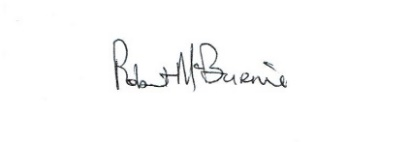 Robert McBurnie